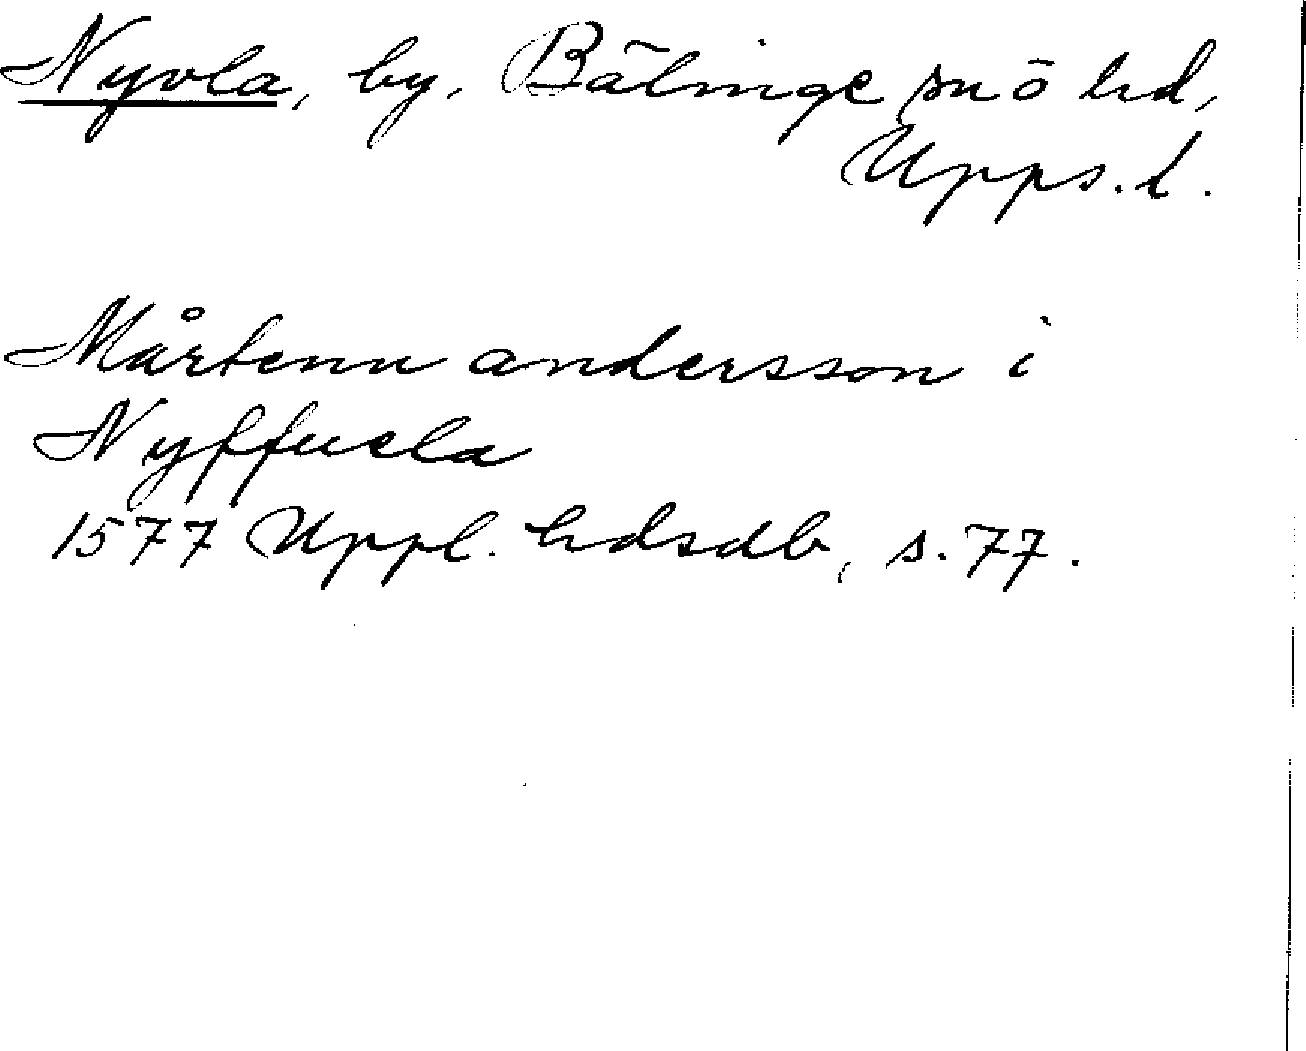 Nyvla, by, Bälinge sn ö hd,
Upps. l.
Mårtenn andersson i
Nyffuela
1577 Uppl. hdsdb, s. 77.